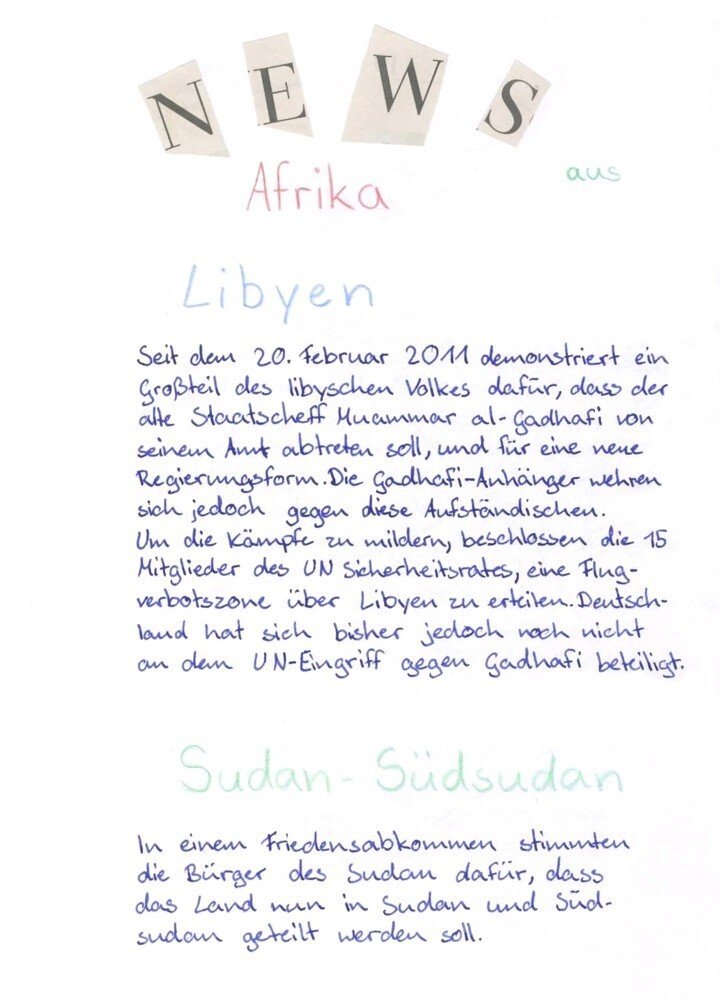 NEWS
aus
Afrika
Libyen
Seit dem 20. Februar 2011 demonstriert ein
Großteil des libyschen Volkes dafür, dass der
alte Staatscheff Muammar al-Gadhafi von
seinem Amt abtreten soll, und für eine neue
Regierungsform. Die Gadhafi-Anhänger wehren
sich jedoch gegen diese Aufständischen.
Um die Kämpfe zu mildern, beschlossen die 15
Mitglieder des UN Sicherheitsrates, eine Flug-
verbotszone über Libyen zu erteilen. Deutsch-
land hat sich bisher jedoch noch nicht
an dem UN-Eingriff gegen Gadhafi beteiligt.
Sudan-Südsudan
In einem Friedensabkommen stimmten
die Bürger des Sudan dafür, dass
das Land nun in Sudan und Süd-
sudan geteilt werden soll.